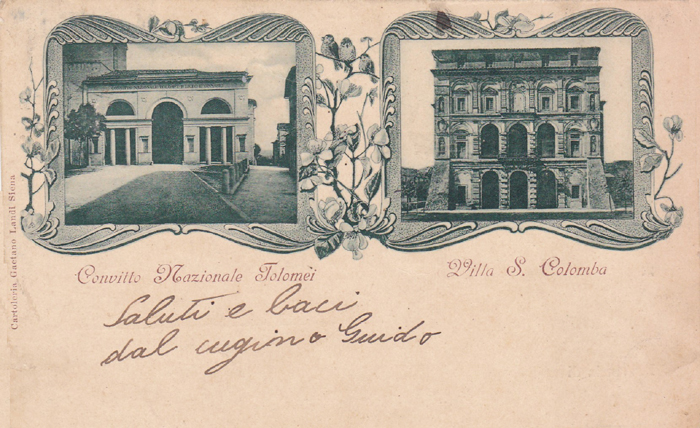 Convitto Nazionale Tolomëi
Villa S. Colomba
Saluti e baci
dal cugino Guido
Cartoleria Gaetano Landi Siena